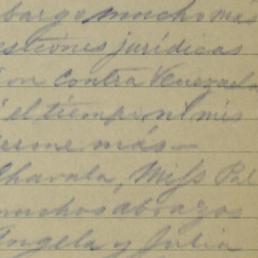 bargo mucho más
esiones jurídicas
on contra Venezuel
el tiempo ni mis
erme más—
Chavala, Miss Pal
muchos abrazos
Angela y Julia